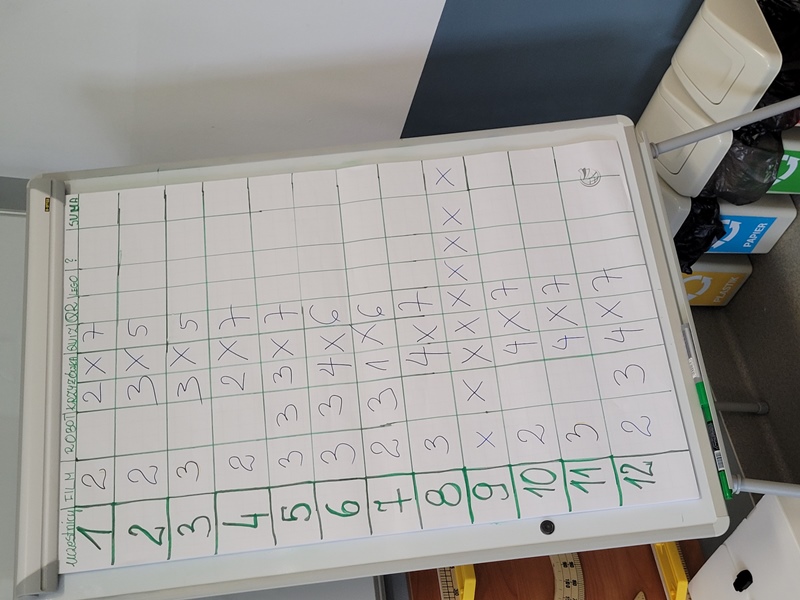 Uczestnicy FILM ROBOT KRZYŻÓWKA QUIZ QR LEGO ? SUMA
1 2 2 X 7
2 2 3 X 5
3 3 3 X 5
4 2 2 X 7
5 3 3 3 X 7
6 3 3 4 X 6
7 2 3 1 X 6
8 3 4 X 7
9 X X X X X X X X X
10 2 4 X 7
11 3 4 X 7
12 2 3 4 X 7
PAPIER
PLASTIK